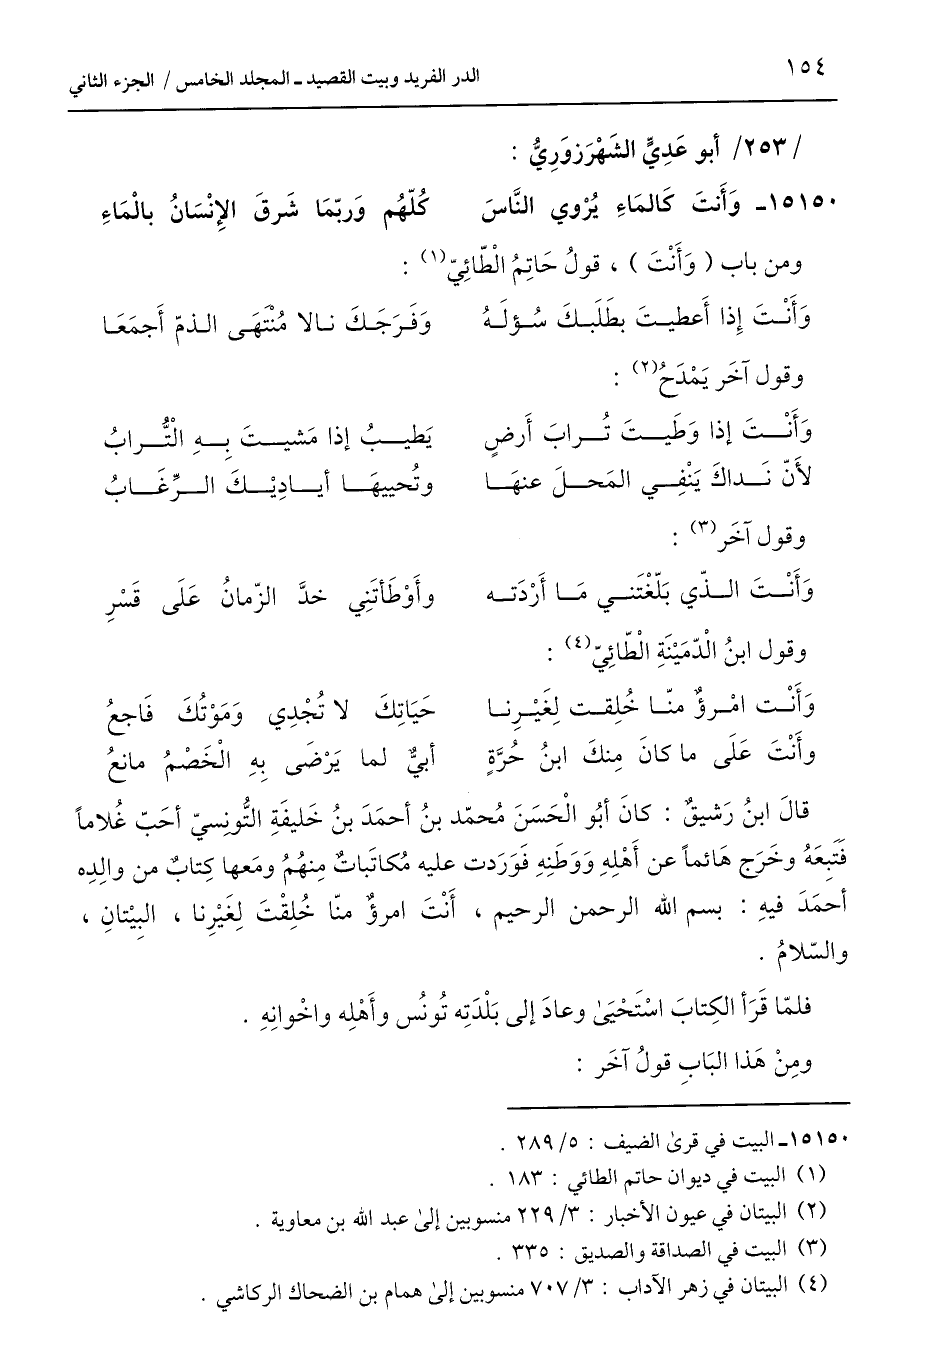 ١٥٤
الدر الفريد وبيت القصيد ـ المجلد الخامس / الجزء الثاني
/٢٥٣/ أبو عَدِيٍّ الشَهْرَزوَرِيُّ :
١٥١٥٠ـ وَأَنتَ كَالماءِ يُرْوي النَّاسَ كُلّهُم وَربّمَا شَرقَ الإِنْسَانُ بالْماءِ
ومن باب ( وَأَنْتَ ) ، قولُ حَاتِمُ الْطّائِيّ(١) :
وَأَنْتَ إِذا أَعطيتَ بطَلَبكَ سُؤلَهُ وَفَرَجَكَ نالا مُنْتَهَى الذمّ أَجمَعَا
وقول آخَر يَمْدَحُ(٢) :
وَأَنْتَ إذا وَطَيتَ تُرابَ أَرضٍ يَطيبُ إذا مَشيتَ بِهِ الْتُّرابُ
لأَنّ نَداكَ يَنْفِي المَحلَ عنهَا وتُحييهَا أياديْكَ الرِّغَابُ
وقول آخَر(٣) :
وَأَنْتَ الذّي بَلّغْتَني مَا أَرْدَته وأَوْطَأتَنِي خدَّ الزّمانُ عَلَى قَسْرِ
وقول ابنُ الْدّمَيْنَةِ الْطّائِيّ(٤) :
وَأَنْت امْرؤٌ منّا خُلِقت لِغَيْرِنا حَيَاتِكَ لا تُجْدِي وَمَوْتُكَ فَاجعُ
وأَنْتَ عَلَى ما كانَ مِنكَ ابنُ حُرَّةٍ أَبيٌّ لما يَرْضَى بِهِ الْخَصْمُ مانعُ
قالَ ابنُ رَشيقٌ : كانَ أبُو الْحَسَنَ مُحمّد بنُ أحمَدَ بنُ خَليفَةِ التُّونسيّ أحَبّ غُلاماً
فَتَبعَهُ وخَرَج هَائماً عن أَهْلِهِ وَوَطَنِهِ فَوَرَدت عليه مُكاتَباتٌ مِنهُمُ ومَعها كِتابٌ من والِدِه
أحمَدَ فيهِ : بسم الله الرحمن الرحيم ، أَنْتَ امرؤٌ منّا خُلِقْتَ لِغَيْرِنا ، البيْتانِ ،
والسّلامُ .
فلمّا قَرَأ الكِتابَ اسْتَحْيَىٰ وعادَ إلى بَلْدَتِه تُونُس وأَهْلِه واخْوانِهِ .
ومِنْ هَذا البَابِ قولُ آخَر :
١٥١٥٠ـ البيت في قرىٰ الضيف : ٥/ ٢٨٩ .
(١) البيت في ديوان حاتم الطائي : ١٨٣ .
(٢) البيتان في عيون الأخبار : ٣/ ٢٢٩ منسوبين إلىٰ عبد الله بن معاوية .
(٣) البيت في الصداقة والصديق : ٣٣٥ .
(٤) البيتان في زهر الآداب : ٣/ ٧٠٧ منسوبين إلىٰ همام بن الضحاك الركاشي .